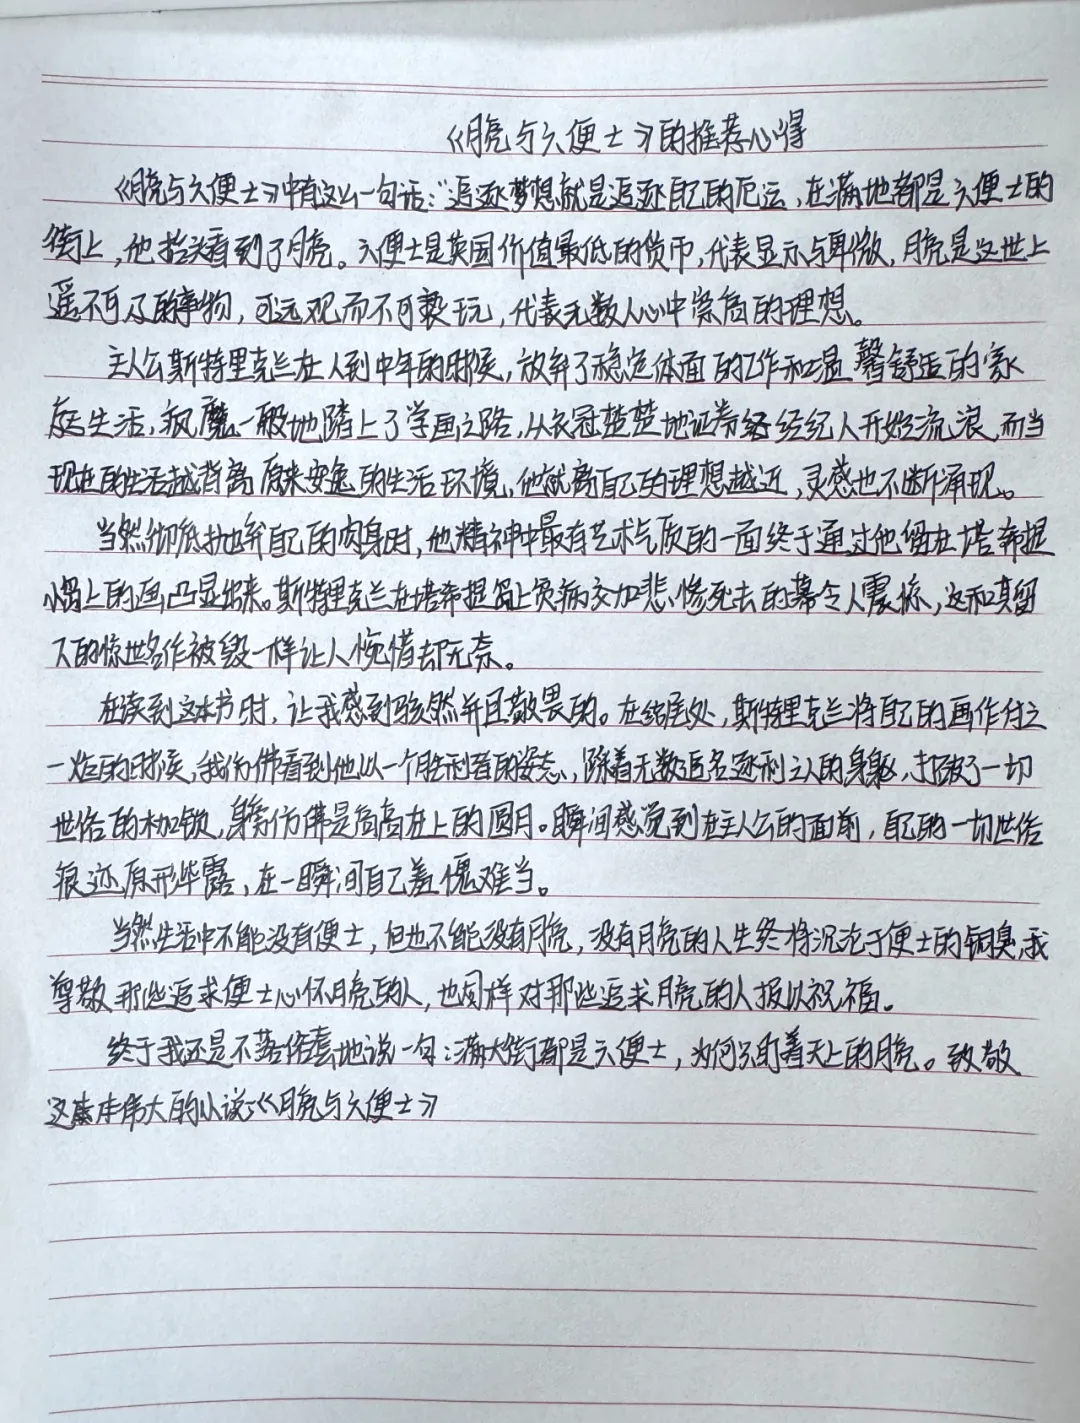 《月亮与六便士》的推荐心得
《月亮与六便士》中有这么一句话：“追逐梦想就是追逐自己的厄运，在满地都是六便士的
街上，他抬头看到了月亮。六便士是英国价值最低的货币，代表显示与卑微，月亮是这世上
遥不可及的事物，可远观而不可亵玩，代表无数人心中崇高的理想。
主人公斯特里克兰在人到中年的时候，放弃了稳定体面的工作和温馨舒适的家
庭生活，疯魔一般地踏上了学画之路，从衣冠楚楚地证券经纪人开始流浪，而当
现在的生活越背离原来安逸的生活环境，他就离自己的理想越近，灵感也不断涌现。
当然彻底抛弃自己的肉身时，他精神中最有艺术气质的一面终于通过他留在塔希提
小岛上的画凸显出来。斯特里克兰在塔希提岛上贫病交加悲惨死去的幕令人震惊，这和其留
下的惊世名作被毁一样让人惋惜却无奈。
在读到这本书时，让我感到骇然并且敬畏的。在结尾处，斯特里克兰将自己的画作付之
一炬的时候，我仿佛看到他以一个胜利者的姿态，踩着无数追名逐利之人的身躯，打破了一切
世俗的枷锁，身旁仿佛是高高在上的圆月。瞬间感觉到在主人公的面前，自己的一切世俗
痕迹原形毕露，在一瞬间自己羞愧难当。
当然生活中不能没有便士，但也不能没有月亮，没有月亮的人生终将沉沦于便士的铜臭，我
尊敬那些追求便士心怀月亮的人，也同样对那些追求月亮的人报以祝福。
终于我还是不落俗套地说一句：满大街都是六便士，为何只盯着天上的月亮。致敬
这本伟大的小说：《月亮与六便士》